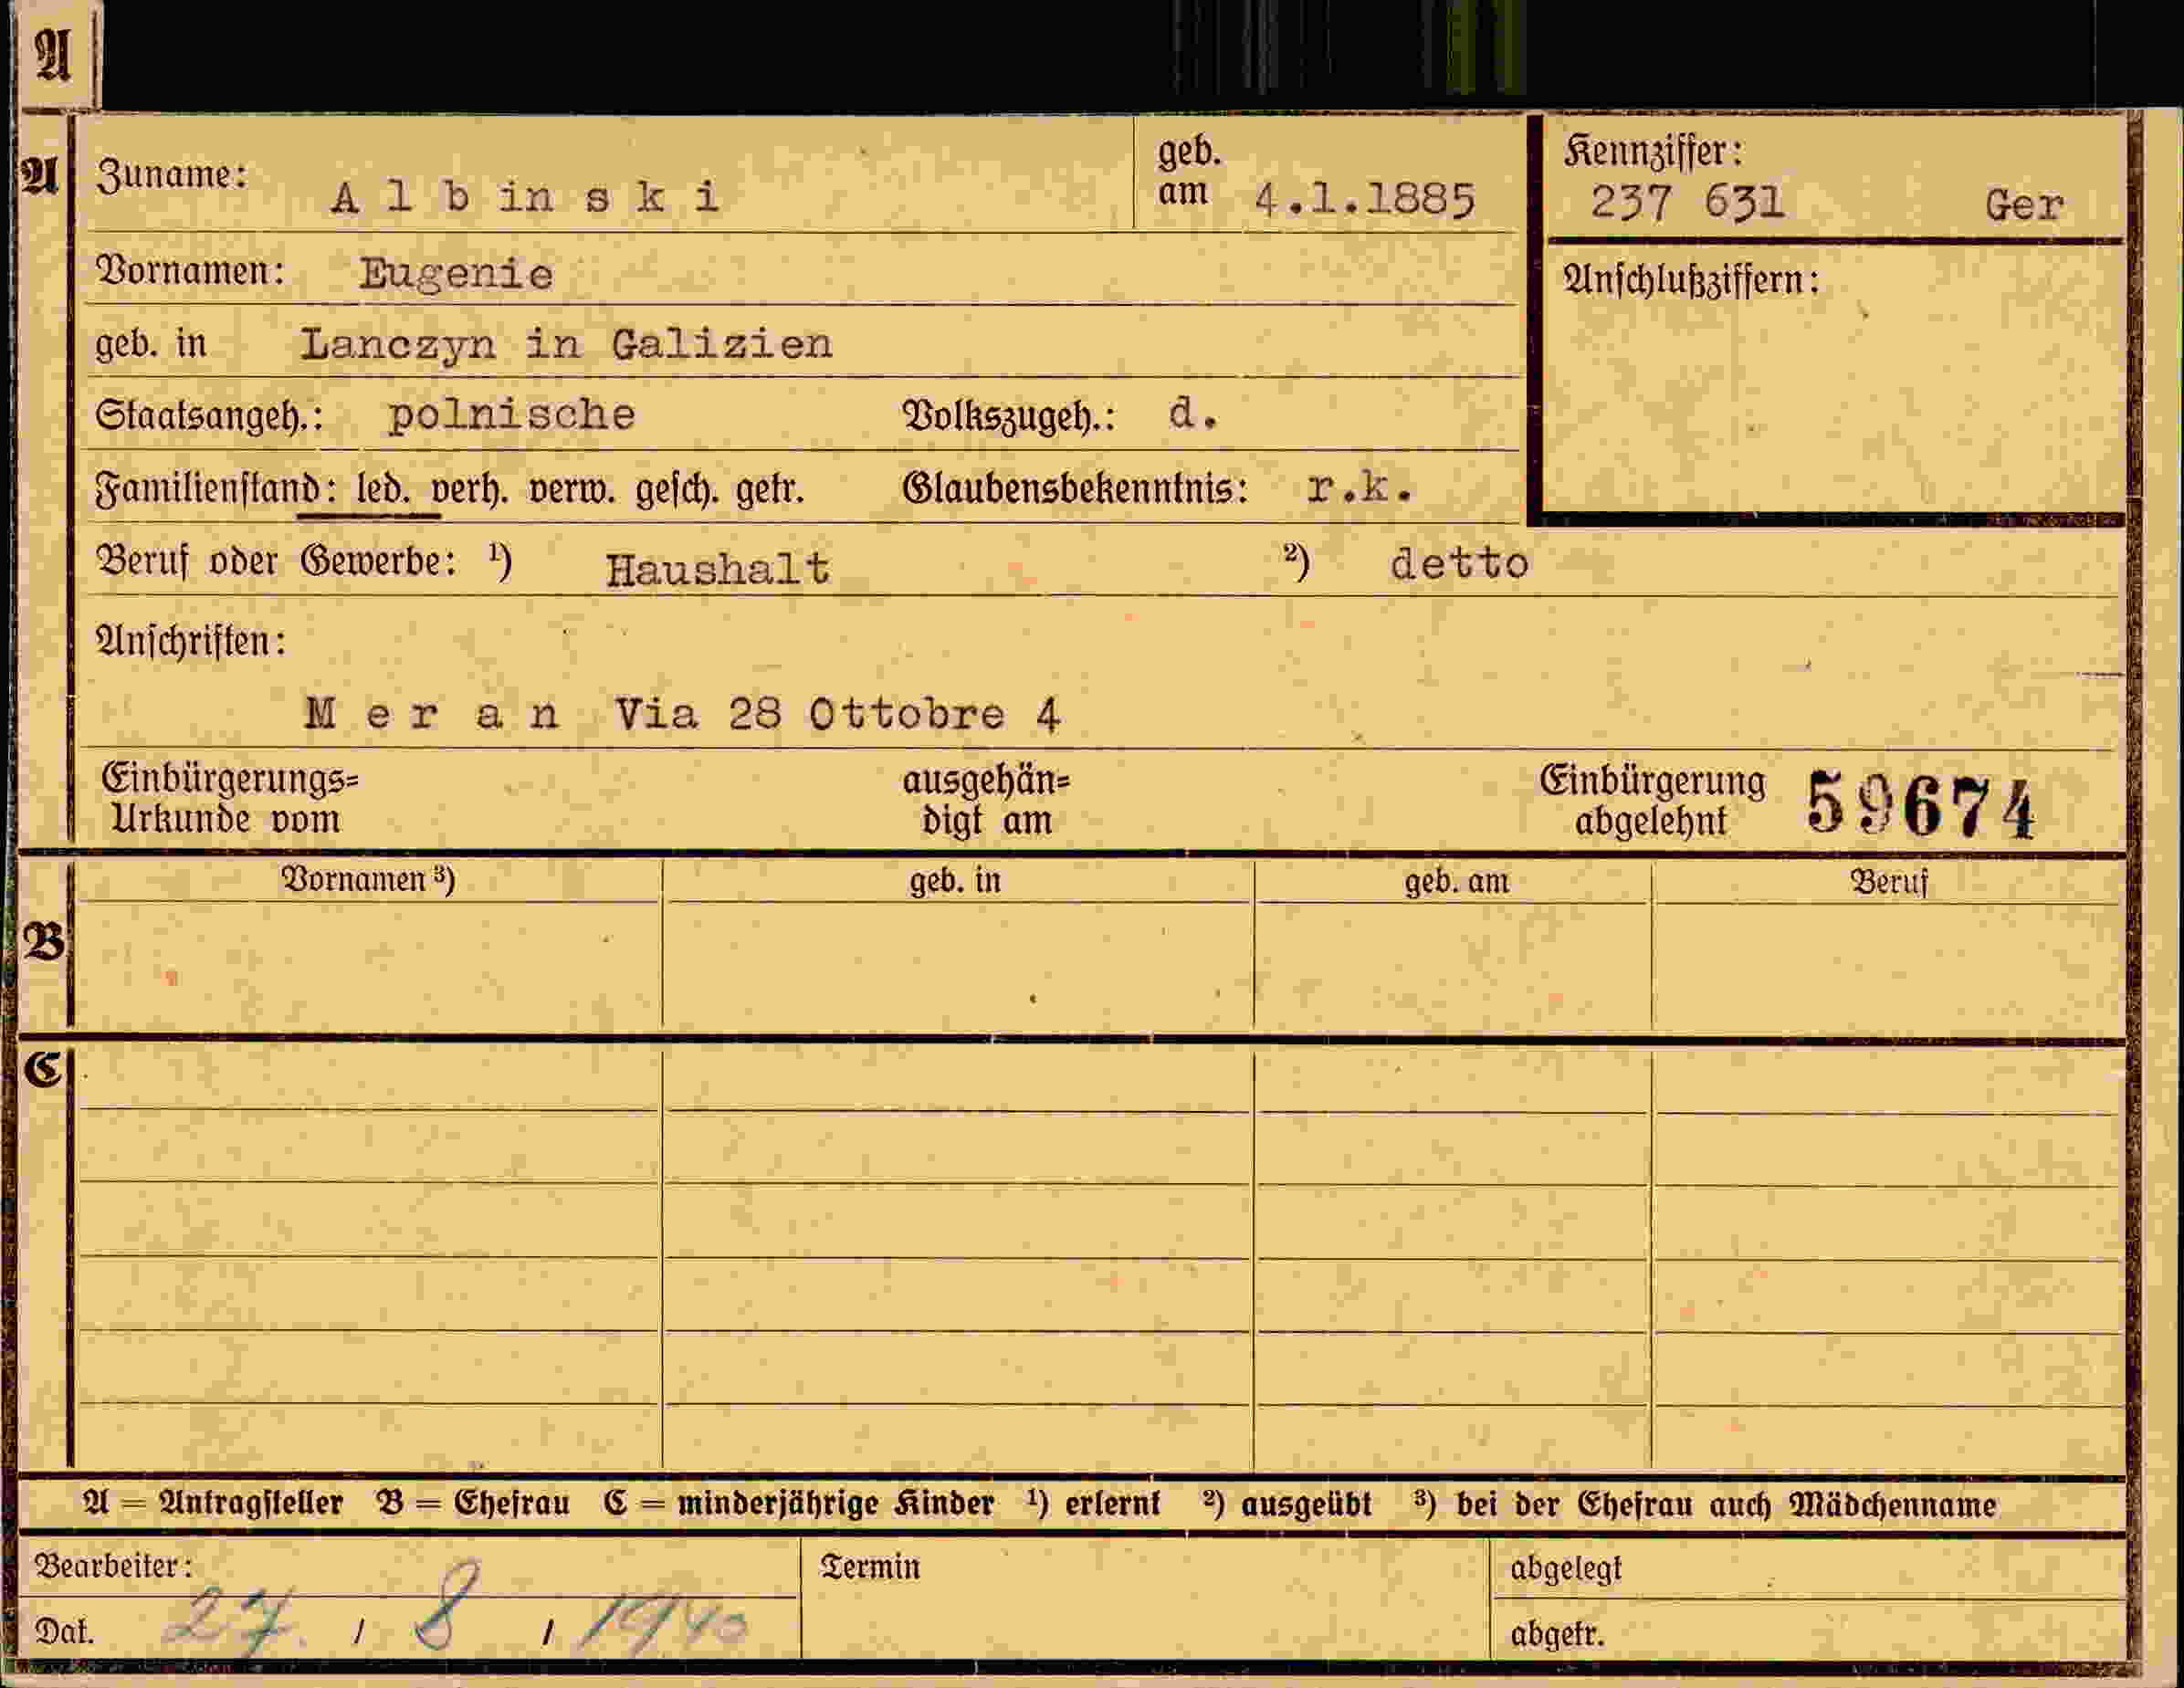 A
A Zuname: Albinski geb. am 4.1.1885
Kennziffer:
237 631 Ger
Vornamen: Eugenie
Anschlußziffern:
geb. in Lanczyn in Galizien
Staatsangeh.: polnische Volkszugeh.: d.
Familienstand: led. verh. verw. gesch. getr. Glaubensbekenntnis: r.k.
Beruf oder Gewerbe: ¹) Haushalt ²) detto
Anschriften:
Meran Via 28 Ottobre 4
Einbürgerungs= Urkunde vom ausgehän= digt am Einbürgerung abgelehnt 59674
Vornamen ³) geb. in geb. am Beruf
B
C
A = Antragsteller B = Ehefrau C = minderjährige Kinder ¹) erlernt ²) ausgeübt ³) bei der Ehefrau auch Mädchenname
Bearbeiter: Termin abgelegt
Dat. 27. / 8 / 1940 abgetr.